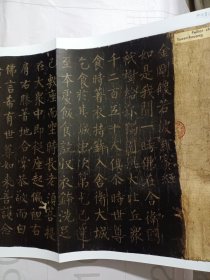 金剛般若波羅蜜經
如是我聞一時佛在舍衛國
祇樹給孤獨園與大比丘衆
千二百五十人俱尒時世尊
食時著衣持鉢入舍衛大城
乞食於其城中次第乞已還
至本處飯食訖收衣鉢洗足
已敷座而坐時長老須菩提
在大衆中即從座起偏袒右
肩右膝著地合掌恭敬而白
佛言希有世尊如來善護念